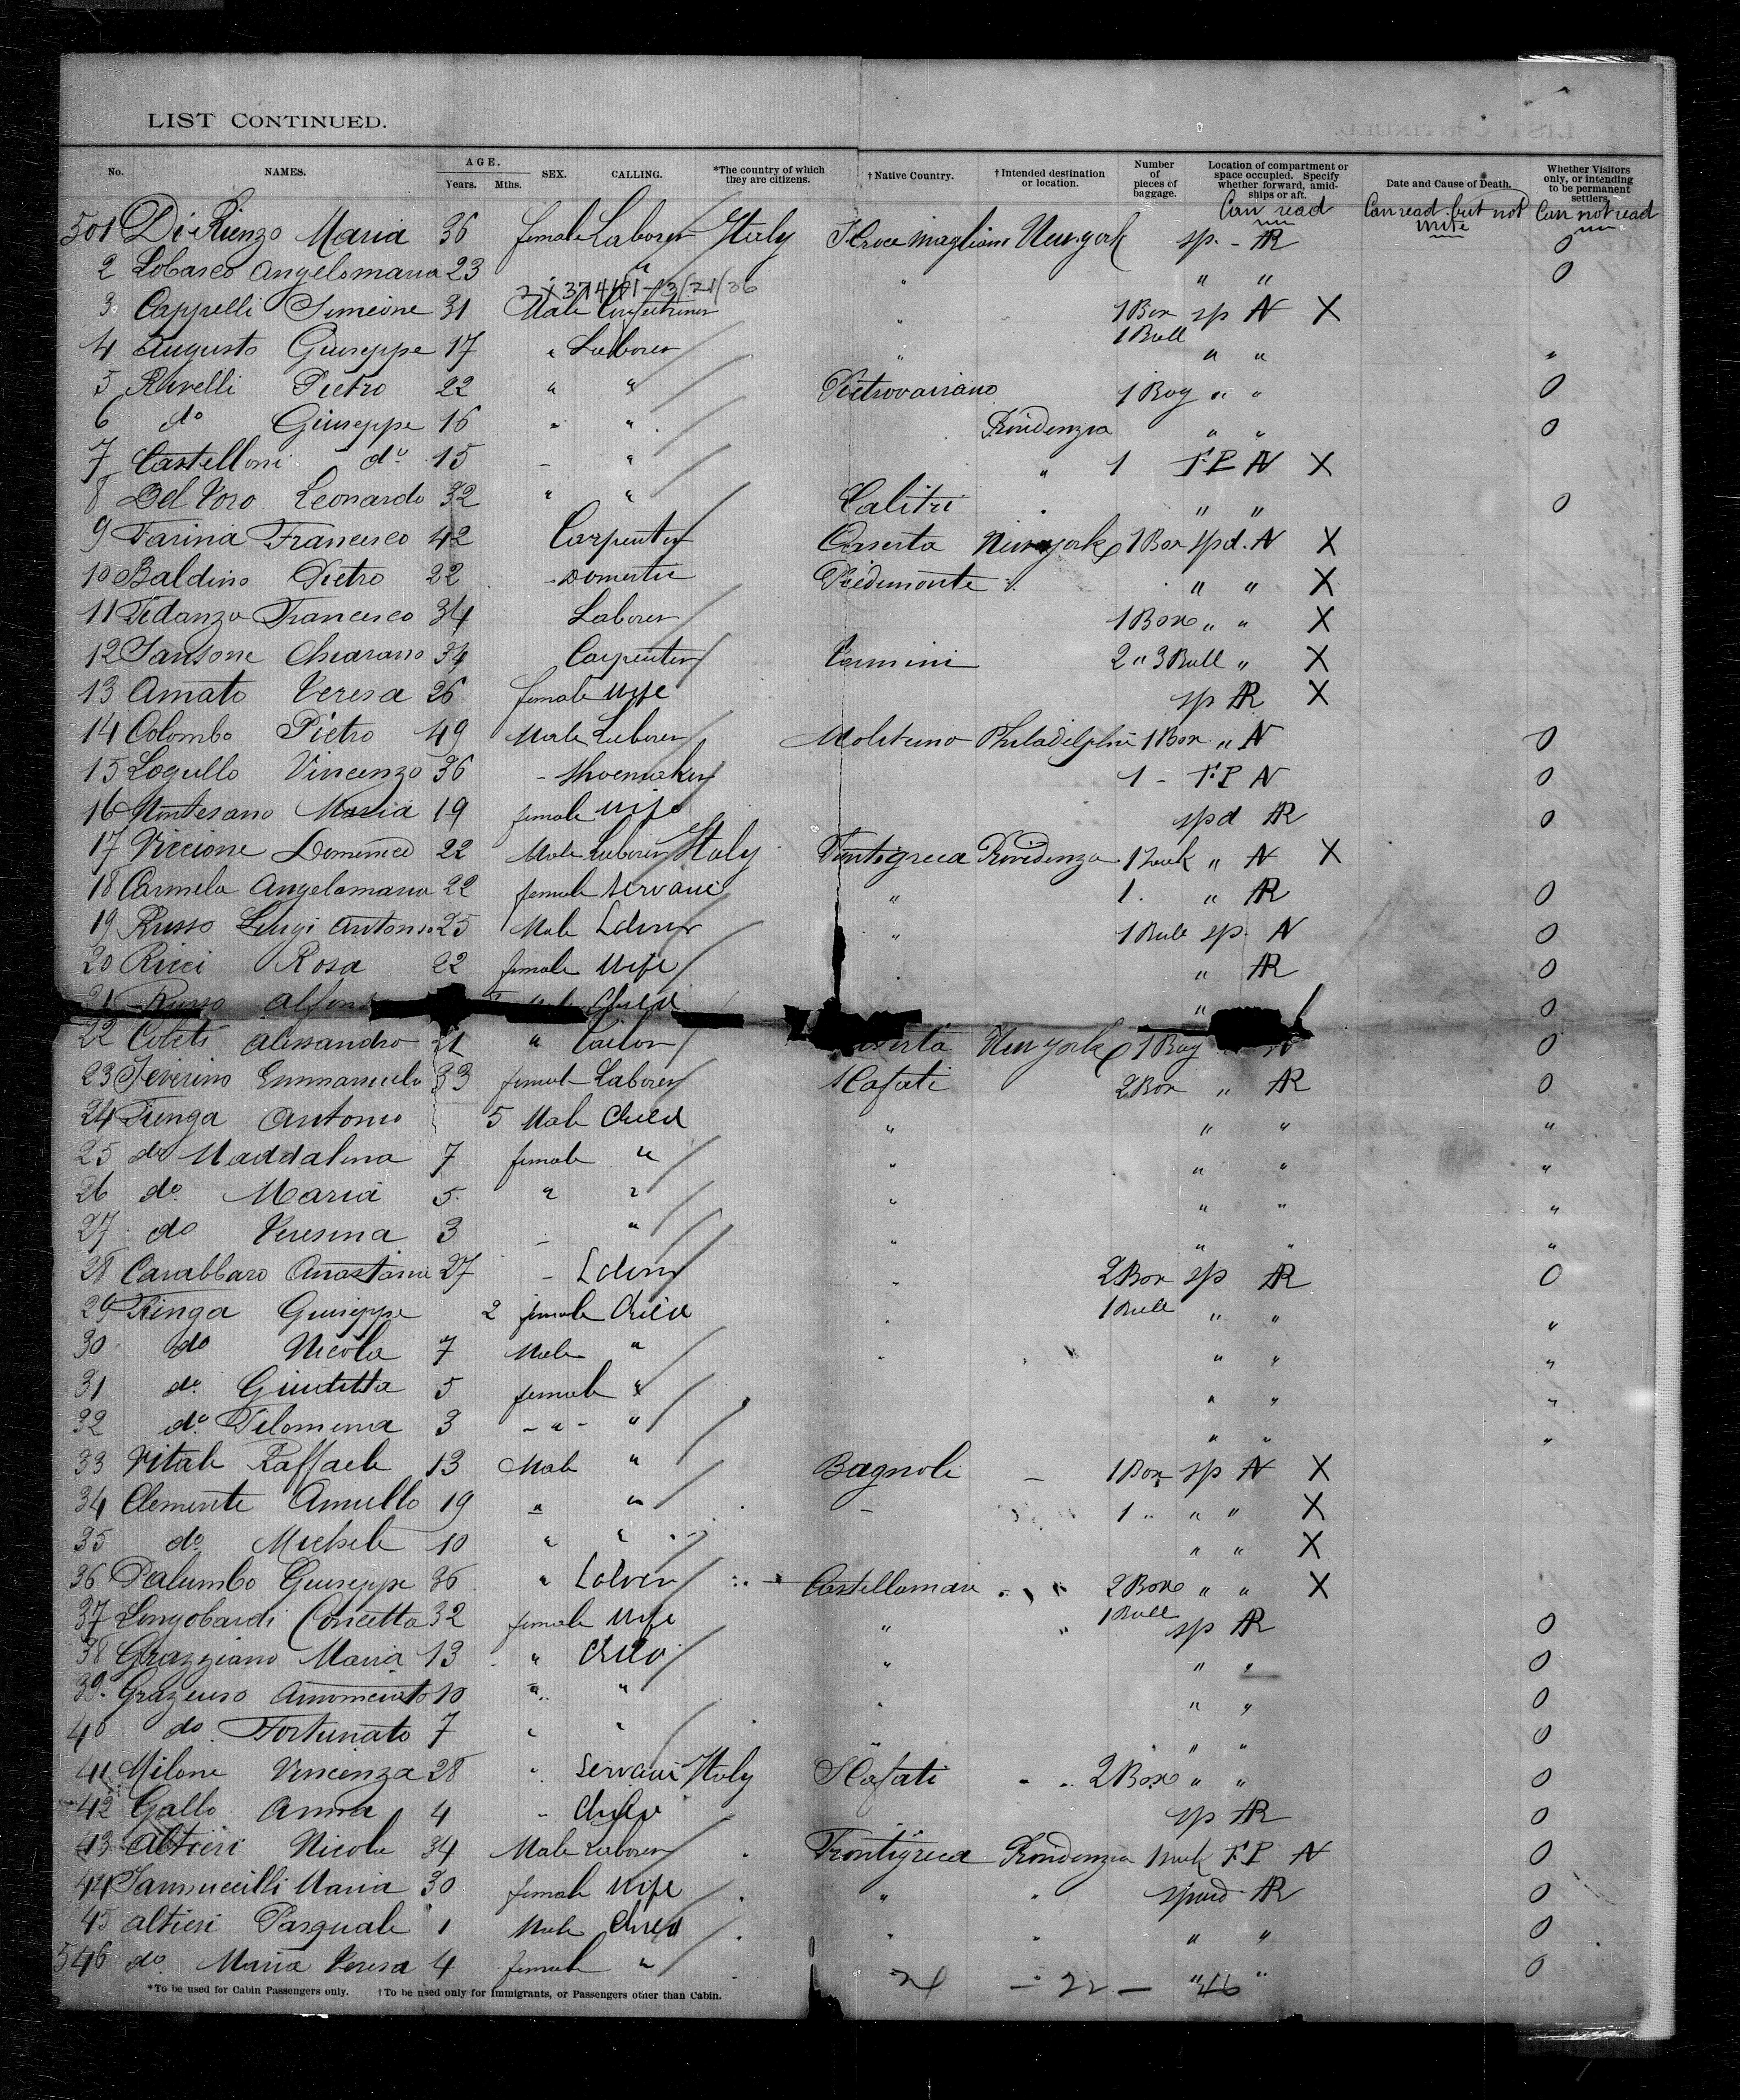 LIST CONTINUED.
No. NAMES. AGE. Years. Mths. SEX. CALLING. *The country of which they are citizens. † Native Country. † Intended destination or location. Number of pieces of baggage. Location of compartment or space occupied. Specify whether forward, amidships or aft. Date and Cause of Death. Whether Visitors only, or intending to be permanent settlers.
Can read Can read but not write Can not read
501 Di Rienzo Maria 36 female Laborer Italy New york sp. - AR 0
2 Lobasco Angelomaria 23 " " " " 0
3 Cappelli Simeone 31 Male " 1 Box sp N X
1 Bull
4 Augusto Giuseppe 17 " Laborer " " " "
5 Ruvelli Pietro 22 " " Pietrovairano 1 Bag " " 0
6 do Giuseppe 16 " " Providenza " " 0
7 Castelloni do 15 - " " 1 F.P. N X
8 Del Voso Leonardo 32 " " Calitri " " " 0
9 Farina Francesco 42 Carpenter Caserta New york 1 Box spd. N X
10 Baldino Pietro 22 - Domestic Piedemonte " " " X
11 Fidanza Francesco 34 Laborer 1 Box " " X
12 Sansone Chiarano 34 Carpenter 2 " 3 Bull " X
13 Amato Teresa 26 female Wife sp AR X
14 Colombo Pietro 49 Male Laborer Moliterno Philadelphia 1 Box " N 0
15 Logullo Vincenzo 36 - Shoemaker 1 - F.P N 0
16 Montesano Maria 19 female Wife spd AR 0
17 Viccione Domenico 22 Male Laborer Italy Providenza 1 " N X
18 Carmela Angelamaria 22 female Servant " 1. " AR 0
19 Russo Luigi Antonio 25 Male Laborer " 1 Bull sp. N 0
20 Ricci Rosa 22 female Wife " " AR 0
21 Russo Child " 0
22 Coleti Alessandro 21 " Tailor New york 1 Bag 0
23 Severino Emmanuela 33 female Laborer Scafati 2 Box " AR 0
24 Antonio 5 Male Child " " " "
25 do Maddalena 7 female " " " " "
26 do. Maria 5 " " " " " "
27 do Teresina 3 - " " " " "
28 Carabbaro Anastasia 27 - Laborer " 2 Box sp AR 0
29 Giuseppe 2 female Child " 1 Bull " " "
30 do Nicola 7 Male " " " " "
31 do. Giuditta 5 female " " " "
32 do. Filomena 3 - " - " " " "
33 Vitale Raffaele 13 Male " Bagnoli - 1 Box sp N X
34 Clemente Aniello 19 " " - 1 " " " X
35 do. Michele 10 " " " " X
36 Palumbo Giuseppe 36 " Laborer Castellamare " " 2 Box " " X
37 Longobardi Concetta 32 female Wife " " 1 Bull sp AR 0
38 Grazziano Maria 13 " Child " " " 0
39 Annunciato 10 " " " " " 0
40 do. Fortunato 7 " " " " " 0
41 Milone Vincenza 28 " Servant Italy Scafati " " 2 Box " " 0
42 Gallo Anna 4 - Child sp AR 0
43 Altieri Nicola 34 Male Laborer Providenza 1 F.P N 0
44 Iannuccilli Maria 30 female Wife " " AR 0
45 Altieri Pasquale 1 Male Child " " " " 0
546 do. Maria Teresa 4 female " " " 0
- 22 - 46
*To be used for Cabin Passengers only. †To be used only for Immigrants, or Passengers other than Cabin.